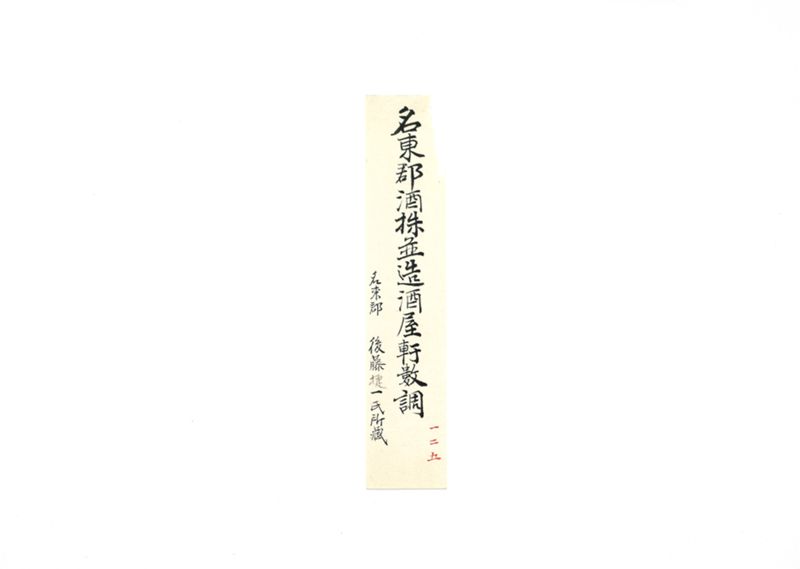 名東郡酒株並造酒屋軒數調
名東郡 後藤捷一氏所藏
一二五